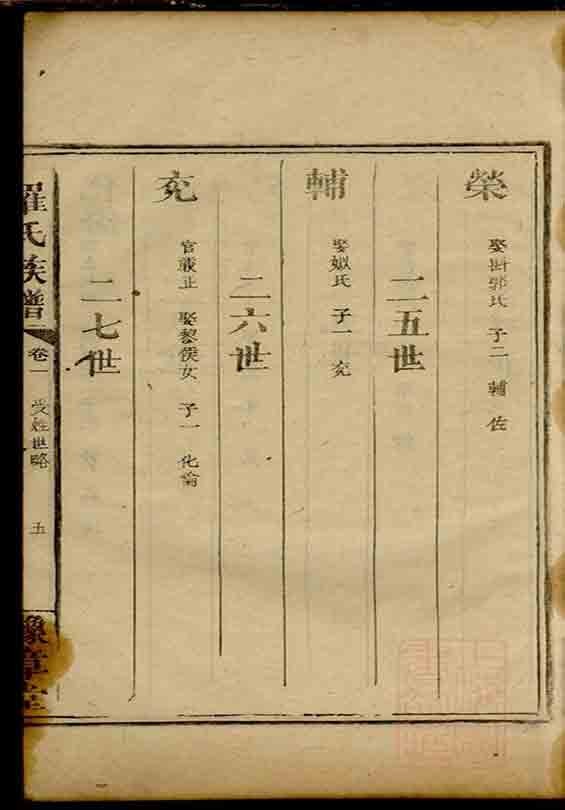 榮
娶斟郭氏 子二 輔 佐
二五世
輔
娶姒氏 子一 充
二六世
充
官藏正 娶黎侯女 子一 化倫
二七世
羅氏族譜
卷一 受姓世略 五
豫章堂